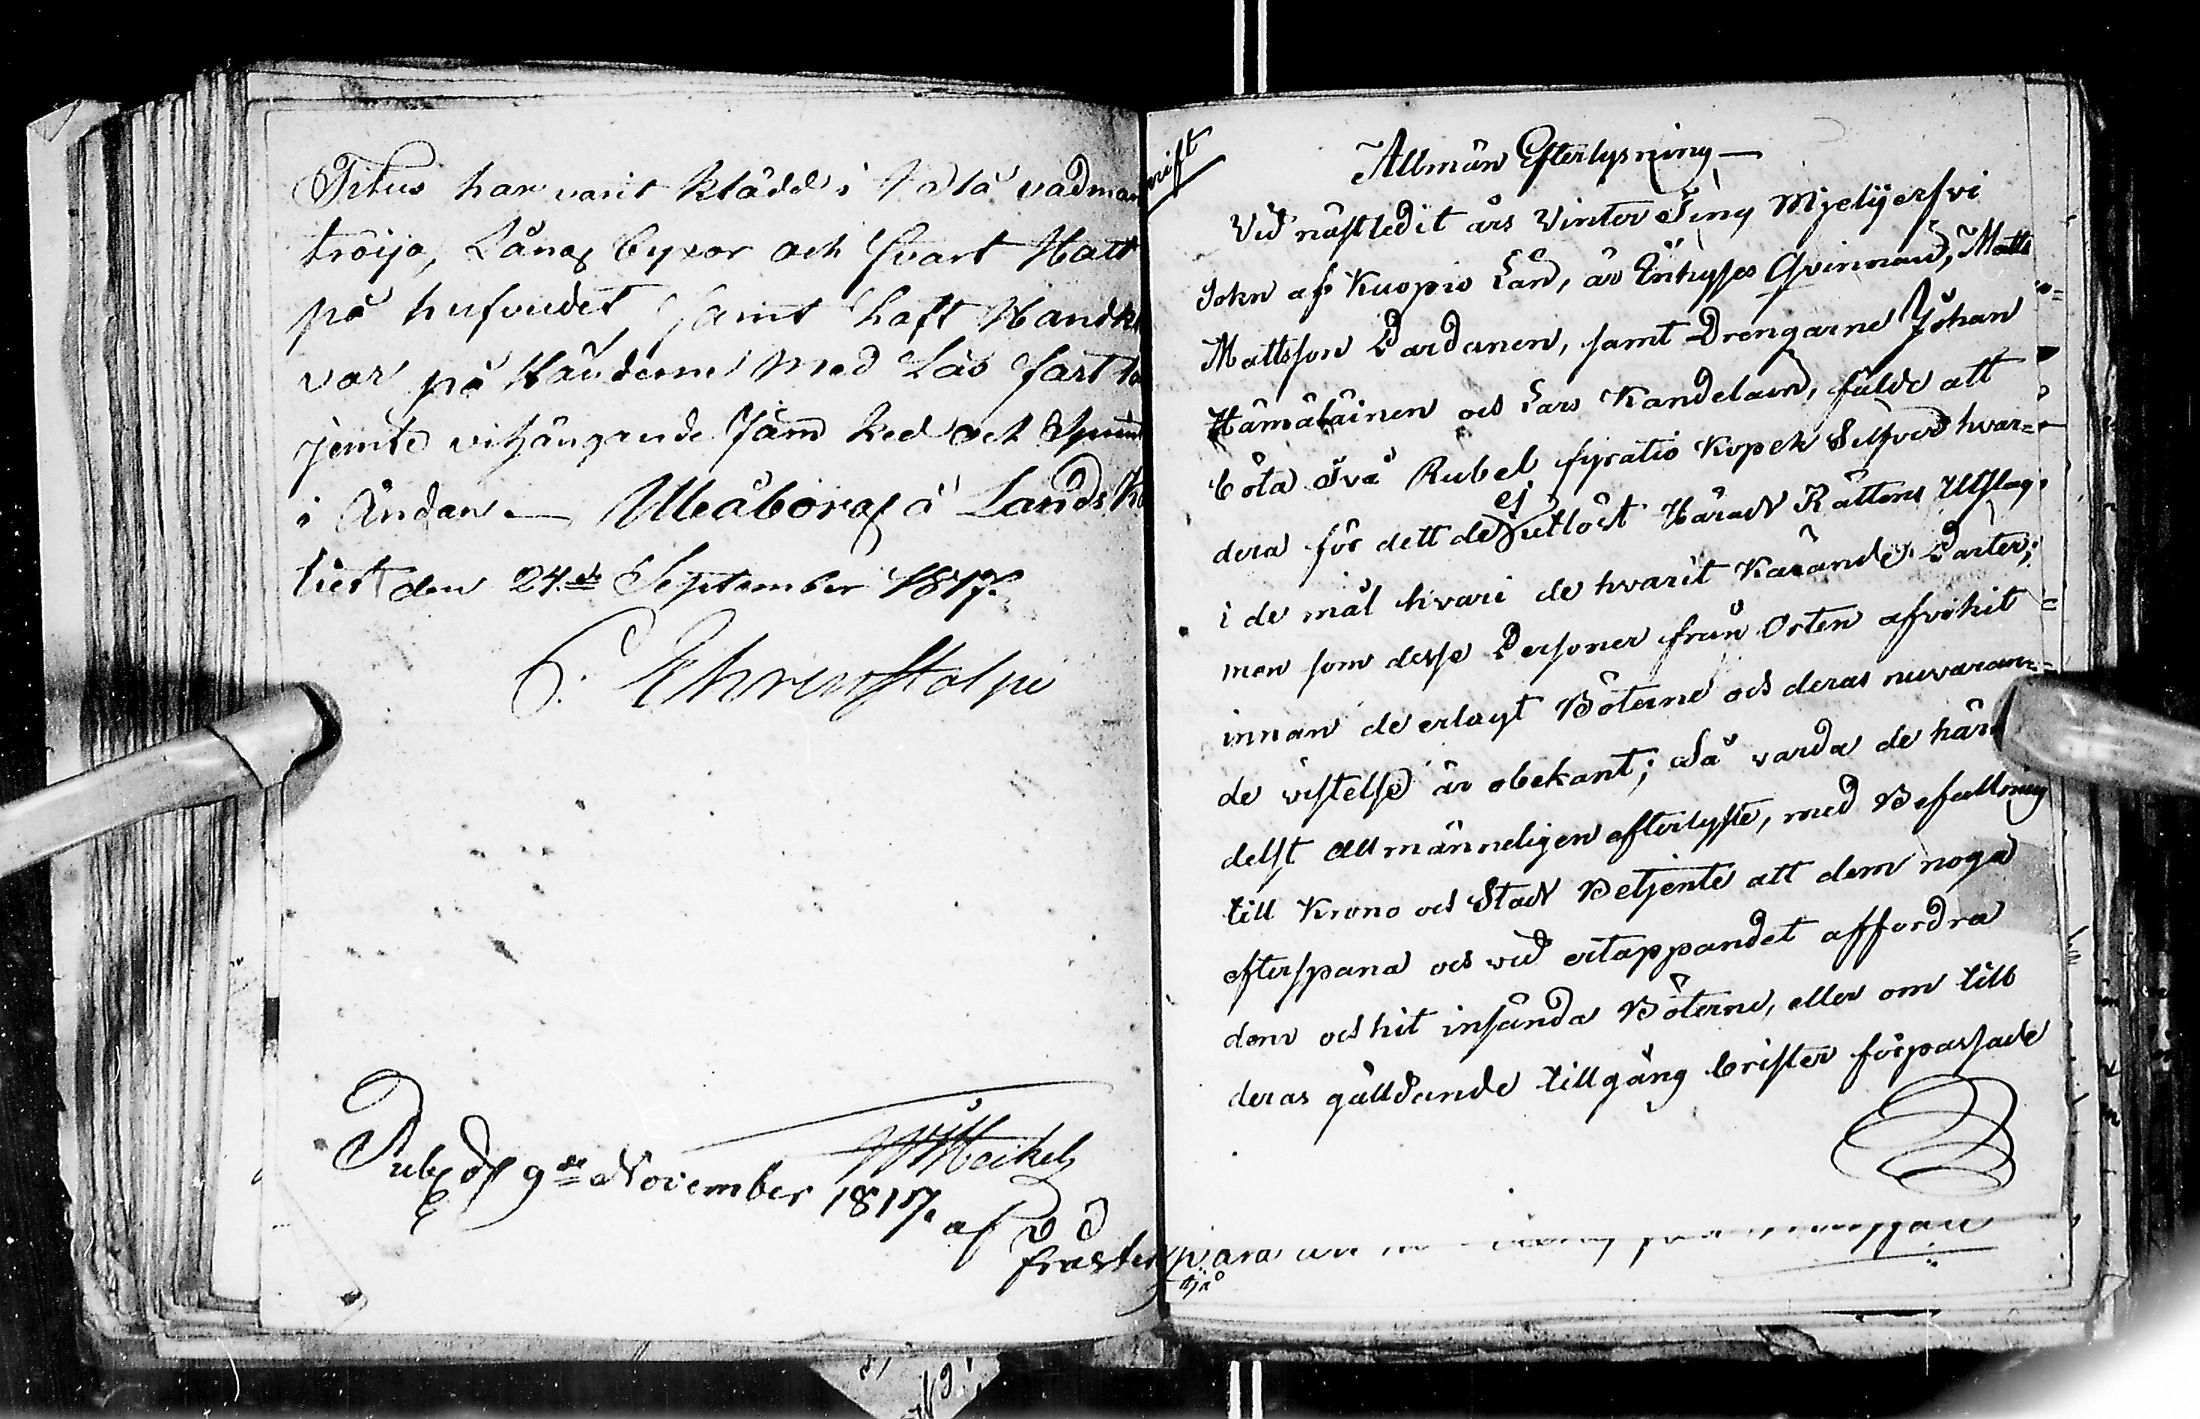 Titus har varit klädd i vadman
tröija, Lång byxor och svart Hatt
på hufvudet, samt haft Handk
var på Händerne med Lås fast
jemte vihängande Järn Ked och
i Ändan — Uleåborg å Lands
tiet den 24de September 1817.
Ehrenstolpe
Meikel
Publ. d. 9de November 1817. af
rift
Allmän Efterlysning —
Vid nästledit års Vinter Ting Mjelijerfvi
Sokn af Kuopio Län, är Enhyses Qvinnan, Matts
Mattsson Pardanen, samt Drengarne Johan
Hämäläinen och Lars Kandelain, fälde att
böta två Rubel fyratio Kopek Silfver hvar=
dera för dett de ej utlöst Härads Rättens Utslag
i de mål hvari de hvarit Kärande Parter;
men som desse Personer från Orten afvikit
innan de erlagt Böterne och deras nuvaran=
de vistelse är obekant; så varda de här
delst allmänneligen efterlyste, med Befallning
till Krono och Stads Betjente att dem noga
efterspana och vid ertappandet affordra
dem och hit insända Böterne, eller om till
deras gälldande tillgång brister förpassade